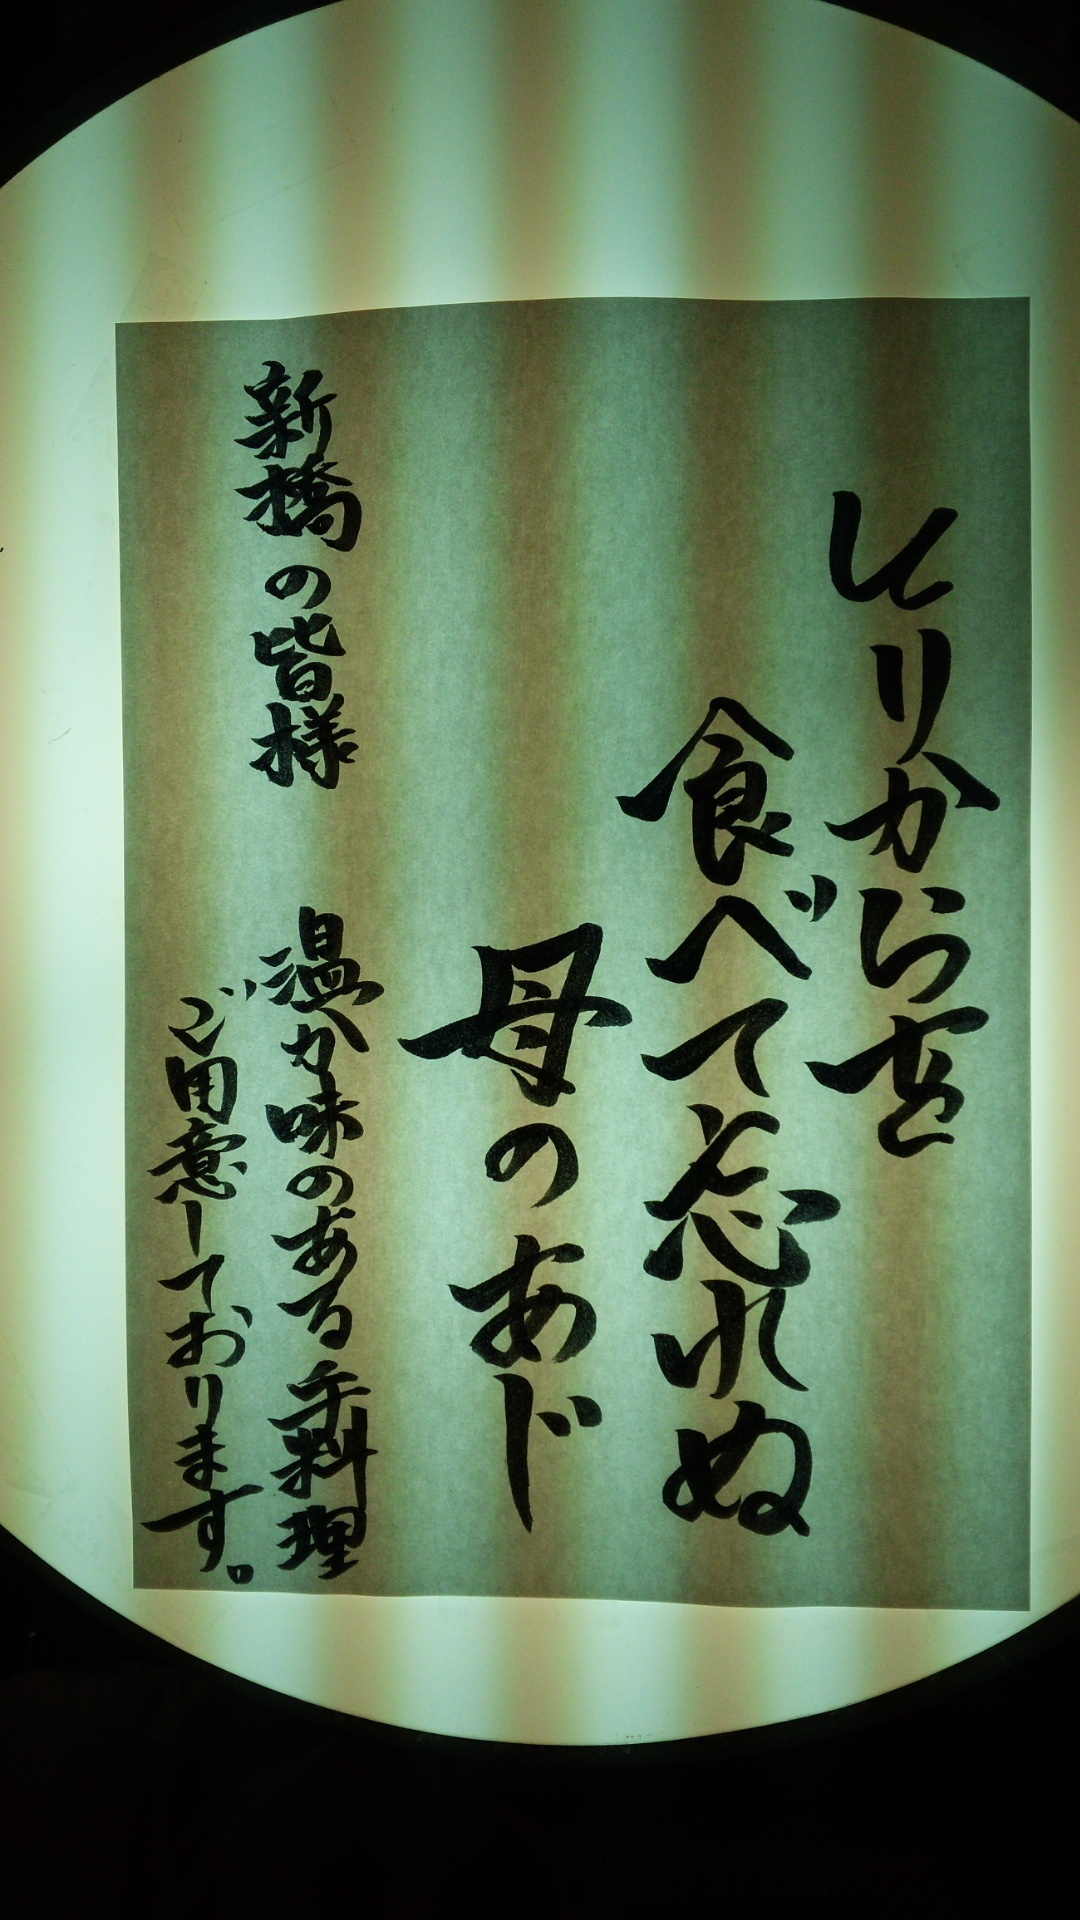 とりからを
食べて忘れぬ
母のあじ
新橋の皆様　温か味のある手料理
ご用意しております。